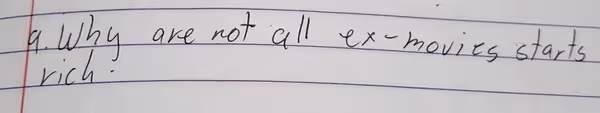 9. Why are not all ex-movies starts
rich.